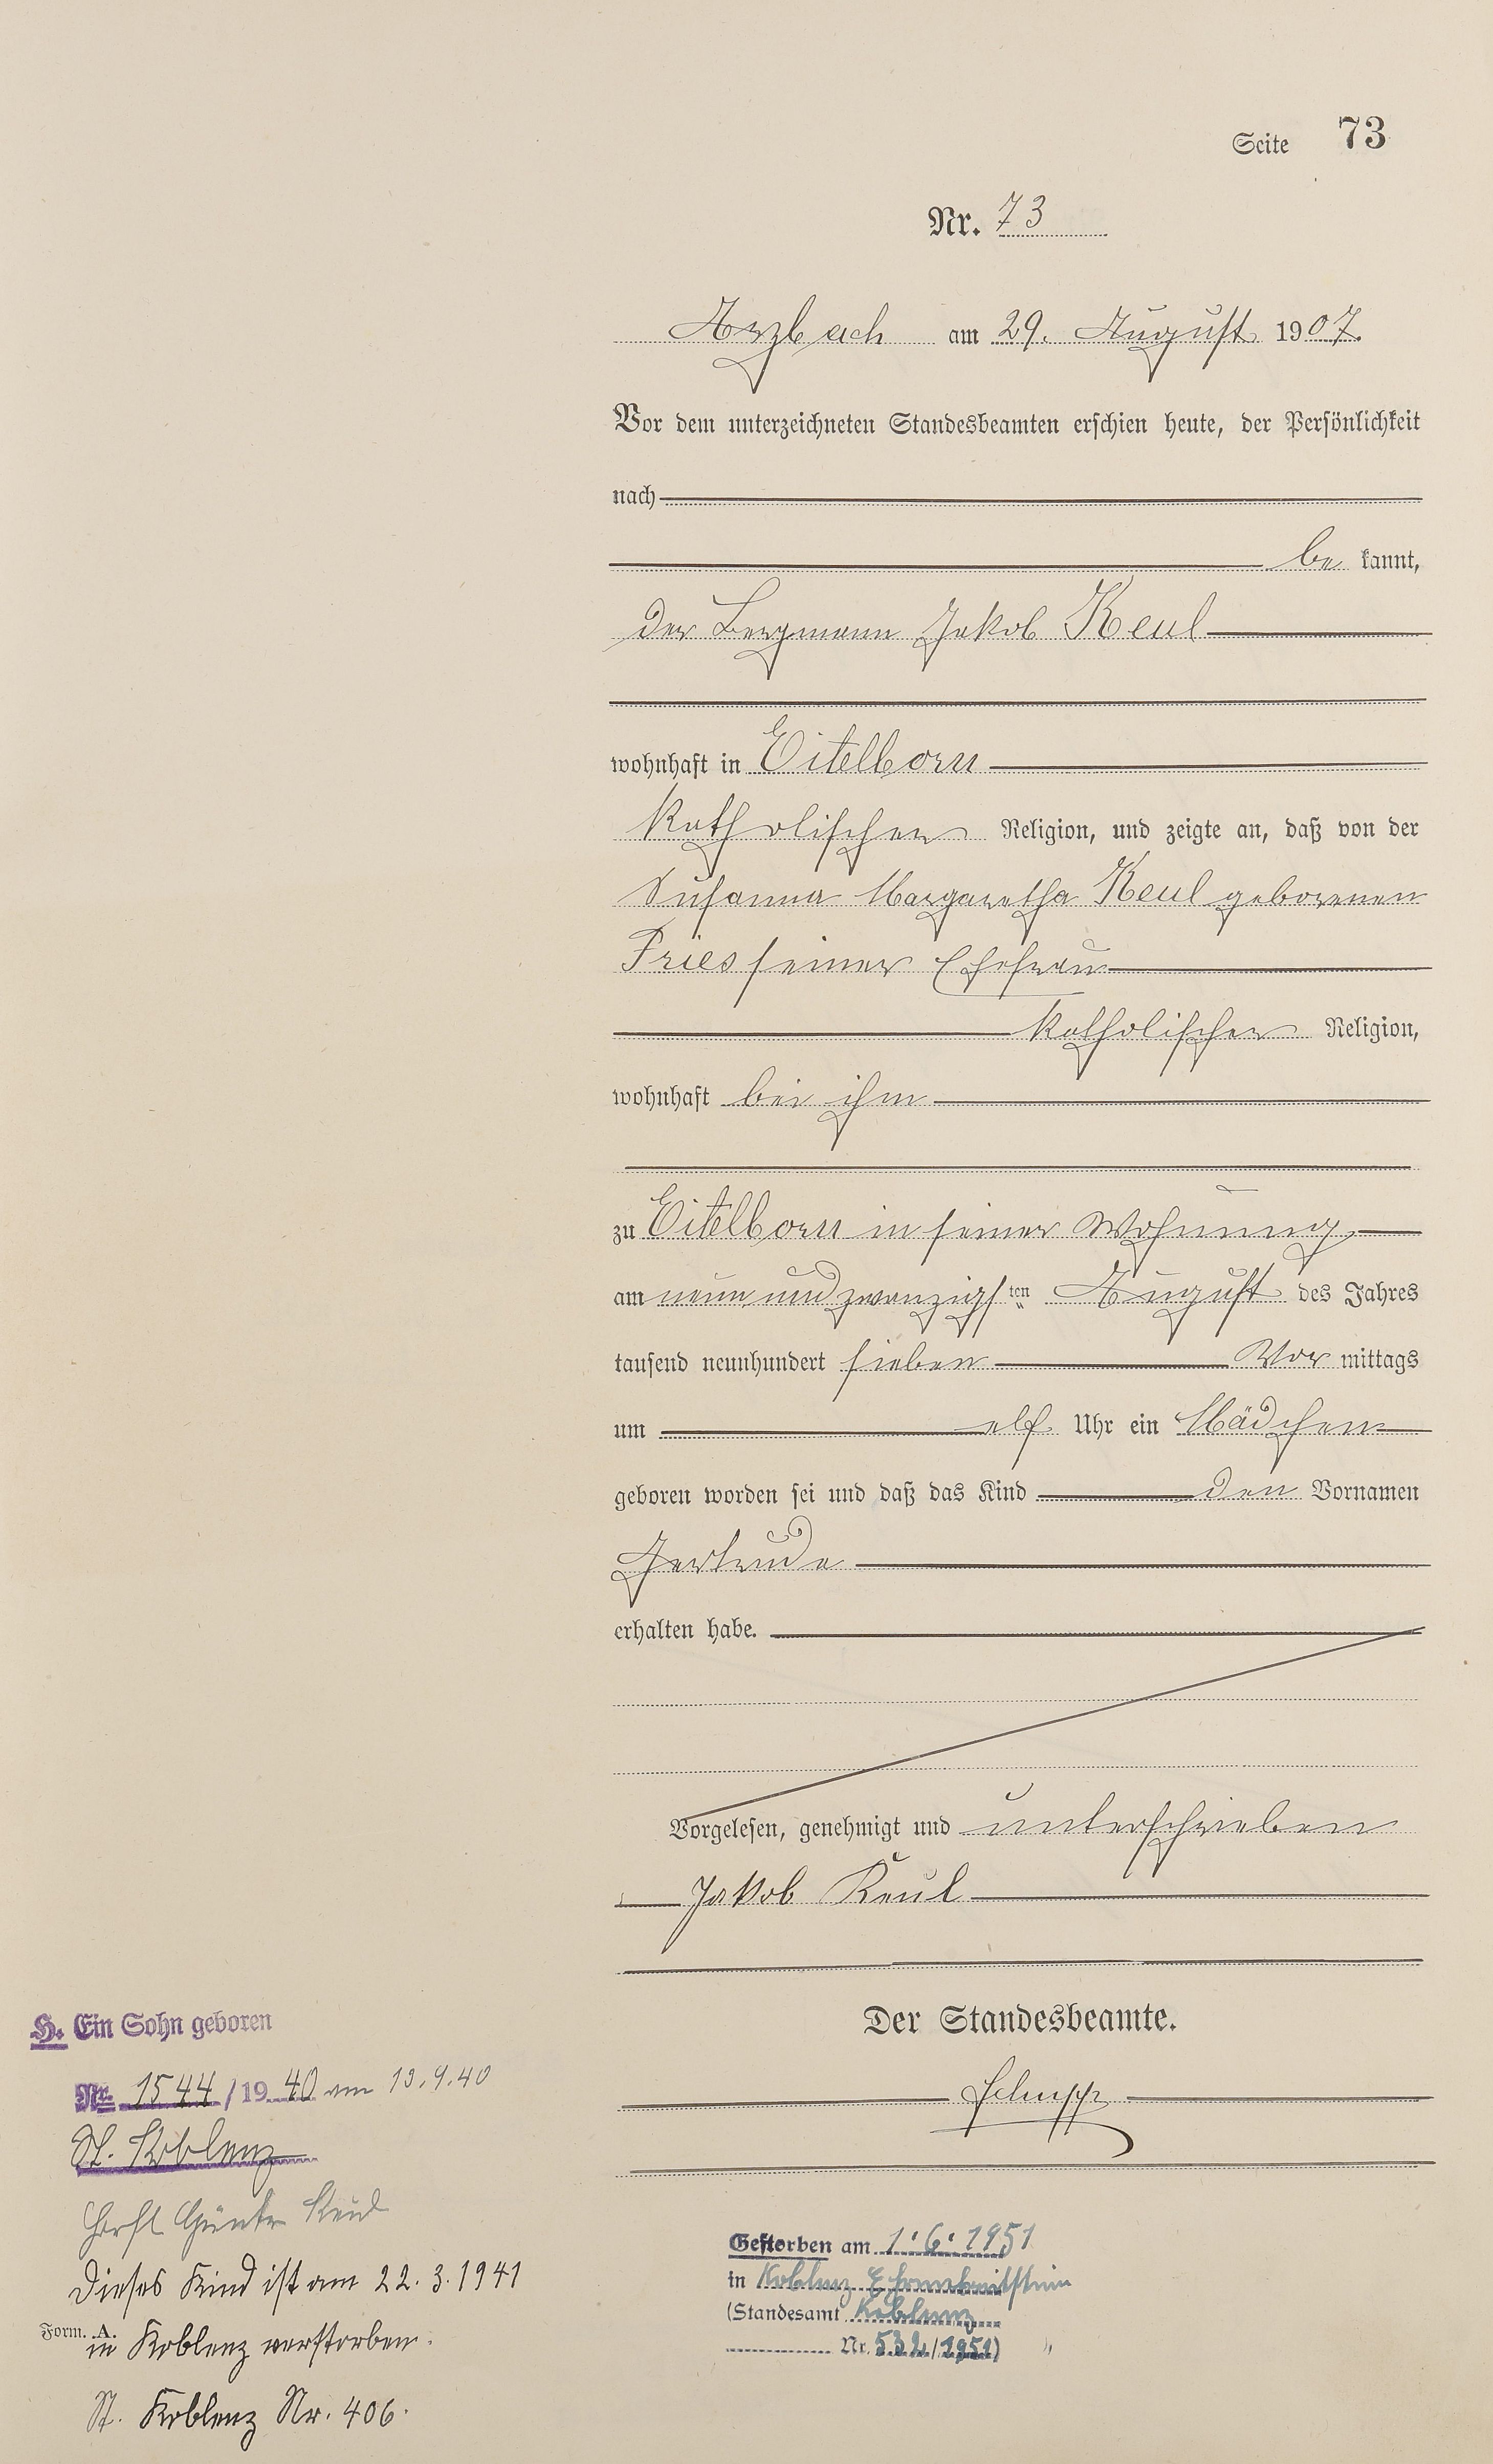 Seite 73
Nr. 73
Arzbach am 29. August 1907.
Vor dem unterzeichneten Standesbeamten erschien heute, der Persönlichkeit
nach
be kannt,
der Bergmann Jakob Keul
wohnhaft in Eitelborn
katholischer Religion, und zeigte an, daß von der
Susanna Margaretha Keul geborenen
Fries seiner Ehefrau
katholischer Religion,
wohnhaft bei ihm
zu Eitelborn in seiner Wohnung
am neun und zwanzigsten August des Jahres
tausend neunhundert sieben Vor mittags
um elf Uhr ein Mädchen
geboren worden sei und daß das Kind den Vornamen
Gertrude
erhalten habe.
Vorgelesen, genehmigt und unterschrieben
Jakob Keul
Der Standesbeamte.
Schupp
H. Ein Sohn geboren
Nr. 1544/1940 am 13.9.40
St. Koblenz
Horst Günter Keul
Dieses Kind ist am 22.3.1941
in Koblenz verstorben.
St. Koblenz Nr. 406.
Form. A.
Gestorben am 1.6.1951
in Koblenz Ehrenbreitstein
(Standesamt Koblenz
Nr. 532/1951)